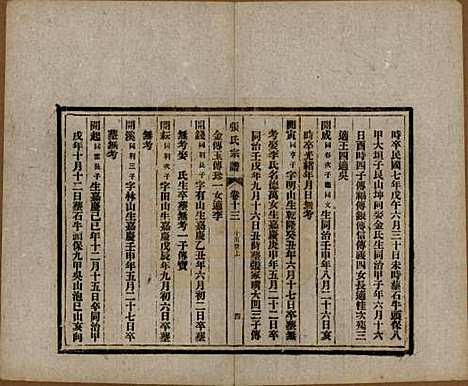 時卒民國七年戊午六月三十日未時墓石牛頭保八
甲大垣子長山坤同娶金氏生同治甲子年六月十六
日酉時四子傳福傳銀傳信傳義四女長適桂次殘三
適王四適吳
開成同春次子繼同文生同治壬申年八月二十六日亥
時卒光緒年月日無考
開寅同亨子字明山生乾隆癸丑年六月十七日卒墓無
考娶李氏名德萬女生嘉慶庚申年五月二十二日卒
同治壬戌年九月十六日丑時墓張家嘴大凹三子傳
金傳玉傳珍一女適李
張氏宗譜
卷十三
四
開錢同利長子字有山生嘉慶乙丑年六月初二日卒墓
無考娶 氏生卒墓無考一子傳寶
開耘同利次子字田山生嘉慶戊辰年九月初六日卒墓
無考
開溪同利三子字林山生嘉慶壬申年五月二十七日卒
墓無考
開起同 長子生嘉慶己巳年十二月十五日卒同治甲
戌年十月十二日墓石牛頭保九甲吳山泡巳山亥向